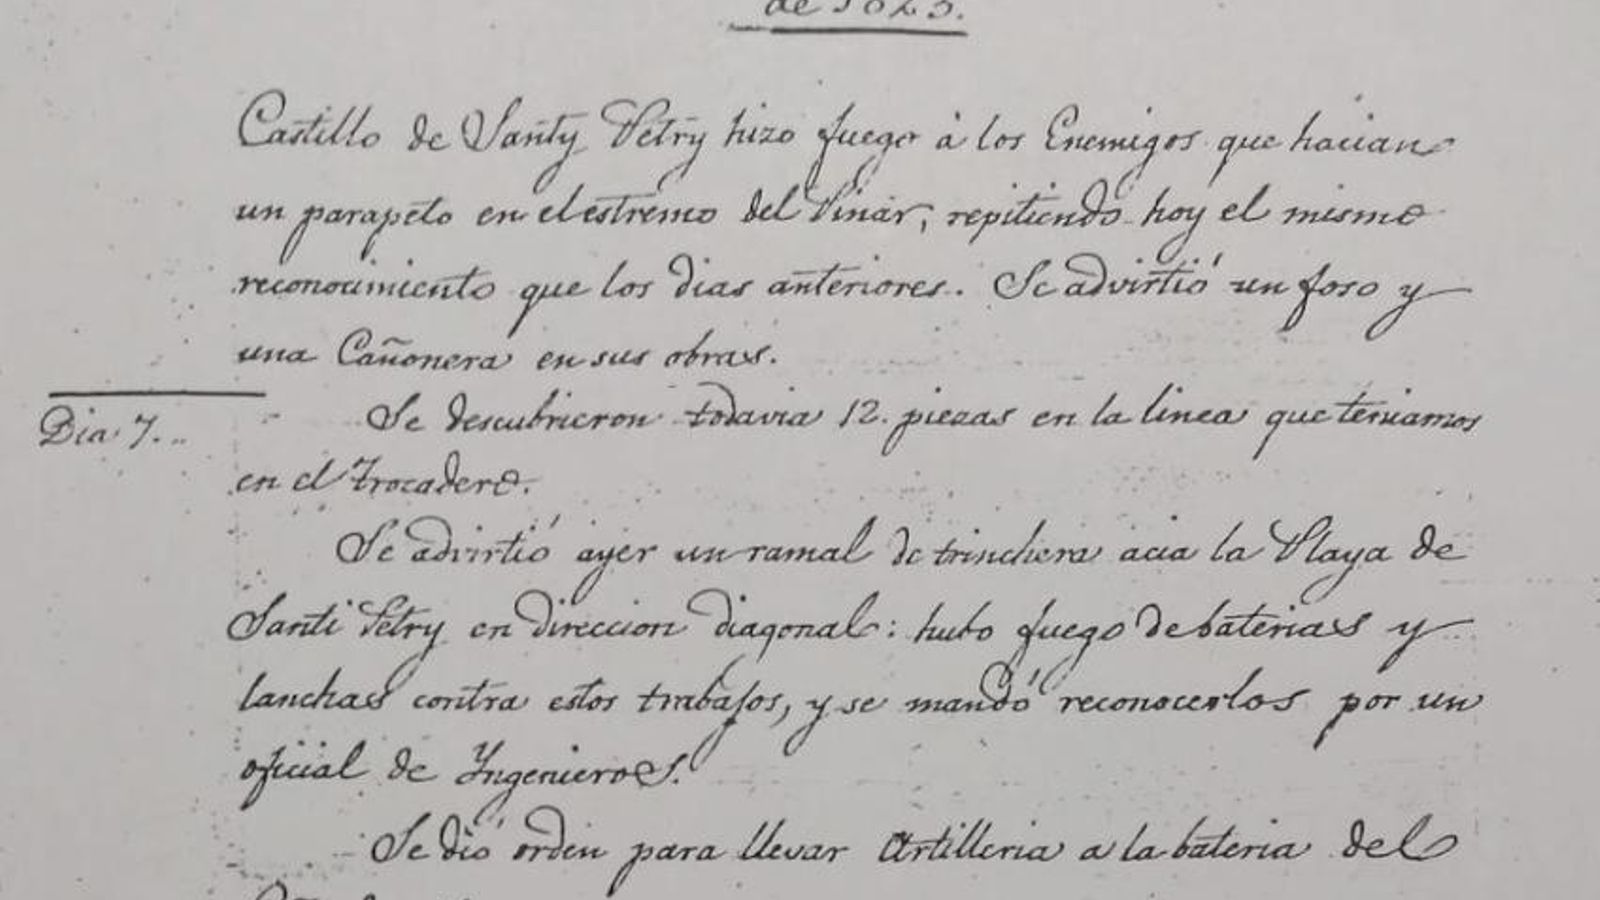 de 1823.
Castillo de Santy Petry hizo fuego à los Enemigos que hacian
un parapeto en el estremo del Pinar, repitiendo hoy el mismo
reconocimiento que los dias anteriores. Se advirtió un foso y
una Cañonera en sus obras.
Dia 7. Se descubrieron todavia 12. piezas en la linea que teniamos
en el Trocadero.
Se advirtió ayer un ramal de trinchera acia la Playa de
Santi Petry en direccion diagonal: hubo fuego de baterias y
lanchas contra estos trabajos, y se mandó reconocerlos por un
oficial de Ingenieros.
Se dió orden para llevar Artilleria a la bateria del